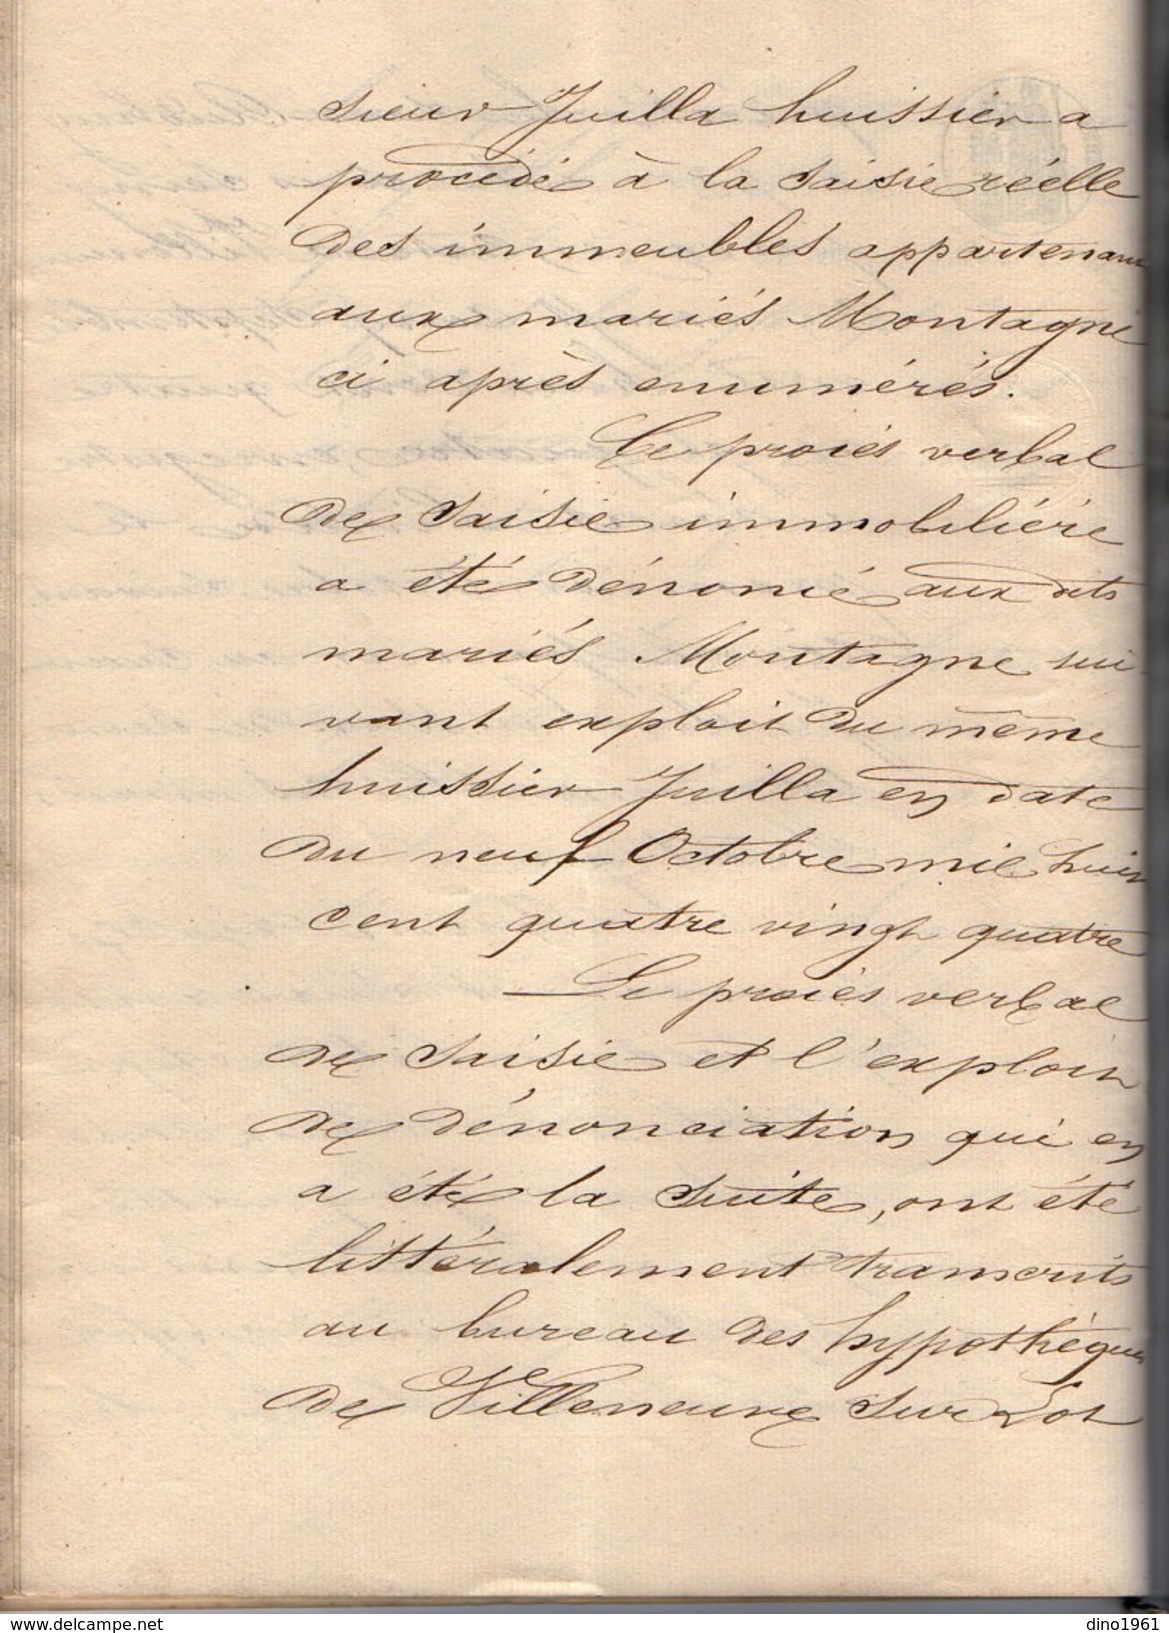 sieur Juilla huissier a
procédé à la saisie réelle
des immeubles appartenant
aux mariés Montagne
ci après enumérés.
Ce procès verbal
de saisie immobilière
a été dénoncé aux dits
mariés Montagne sui
vant exploit du même
huissier Juilla en date
du neuf Octobre mil huit
cent quatre vingt quatre
Le procès verbal
de saisie et l'exploit
de dénonciation qui en
a été la suite, ont été
littéralement transcrits
au bureau des hypothèques
de Villeneuve sur Lot
delcampe.net
dino1961